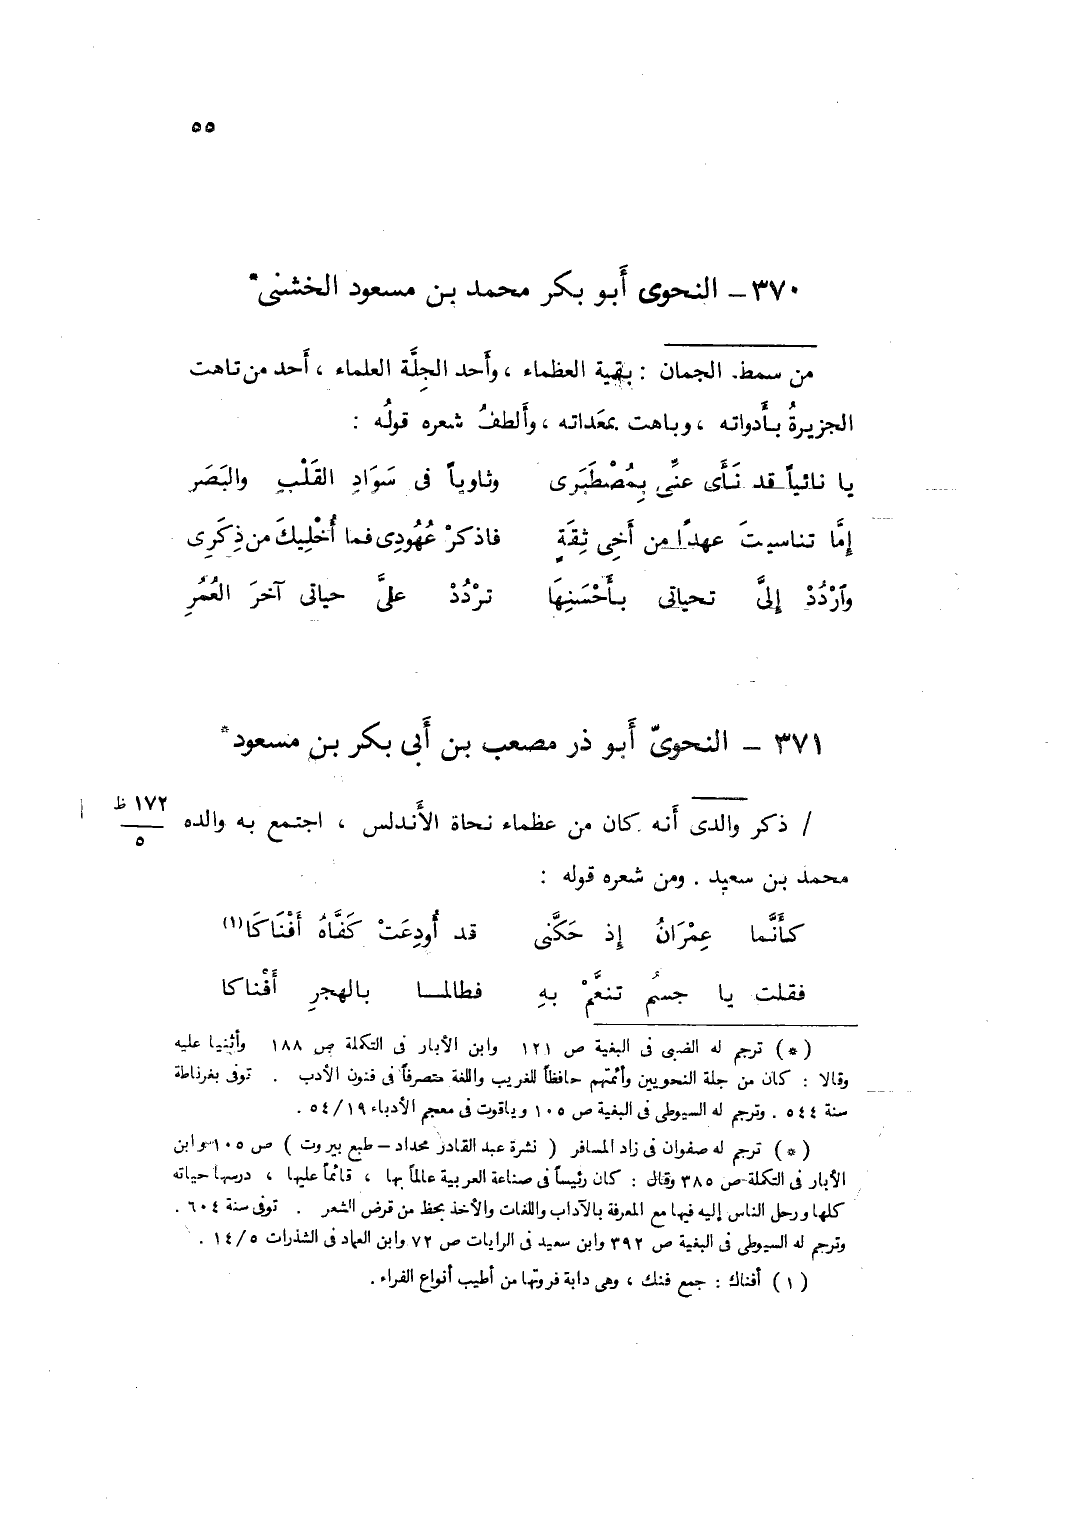 ٥٥
٣٧٠ – النحوى أَبو بكر محمد بن مسعود الخشنى*
من سمط الجمان : بقية العظماء ، وأَحد الجِلَّة العلماء ، أَحد من تاهت
الجزيرةُ بأَدواته ، وباهت بمعَداته ، وأَلطفُ شعره قولُه :
يا نائياً قد نَأَى عنِّى بِمُصْطَبَرِى وثاوياً فى سَوَادِ القَلْبِ والبَصَر
إِمَّا تناسيتَ عهدًا من أَخِى ثِقَةٍ فاذكرْ عُهُودِى فما أُخْلِيكَ من ذِكَرِى
وٱرْدُدْ إِلىَّ تحياتى بأَحْسَنِهَا تردُدْ علىَّ حياتى آخرَ العُمُرِ
٣٧١ – النحوىّ أَبو ذر مصعب بن أَبى بكر بن مسعود*
/ ذكر والدى أَنه كان من عظماء نحاة الأَندلس ، اجتمع به والده
١٧٢ ظ
٥
محمد بن سعيد . ومن شعره قوله :
كأَنَّما عِمْرَانُ إِذ حَكَّنى قد أُودِعَتْ كَفَّاهُ أَفْنَاكَا(١)
فقلت يا جسمُ تنعَّمْ بهِ فطالمــا بالهجرِ أَفْناكا
(*) ترجم له الضبى فى البغية ص ١٢١ وابن الأبار فى التكملة ص ١٨٨ وأثنيا عليه
وقالا : كان من جلة النحويين وأئمتهم حافظاً للغريب واللغة متصرفاً فى فنون الأدب . توفى بغرناطة
سنة ٥٤٤ . وترجم له السيوطى فى البغية ص ١٠٥ وياقوت فى معجم الأدباء ١٩/٥٤ .
(*) ترجم له صفوان فى زاد المسافر ( نشرة عبد القادر محداد – طبع بيروت ) ص ١٠٥ وابن
الأبار فى التكلة ص ٣٨٥ وقال : كان رئيساً فى صناعة العربية عالماً بها ، قائماً عليها ، درسها حياته
كلها ورحل الناس إليه فيها مع المعرفة بالآداب واللغات والأخذ بحظ من قرض الشعر . توفى سنة ٦٠٤ .
وترجم له السيوطى فى البغية ص ٣٩٢ وابن سعيد فى الرايات ص ٧٢ وابن العماد فى الشذرات ٥/١٤ .
(١) أفناك : جمع فنك ، وهى دابة فروتها من أطيب أنواع الفراء .